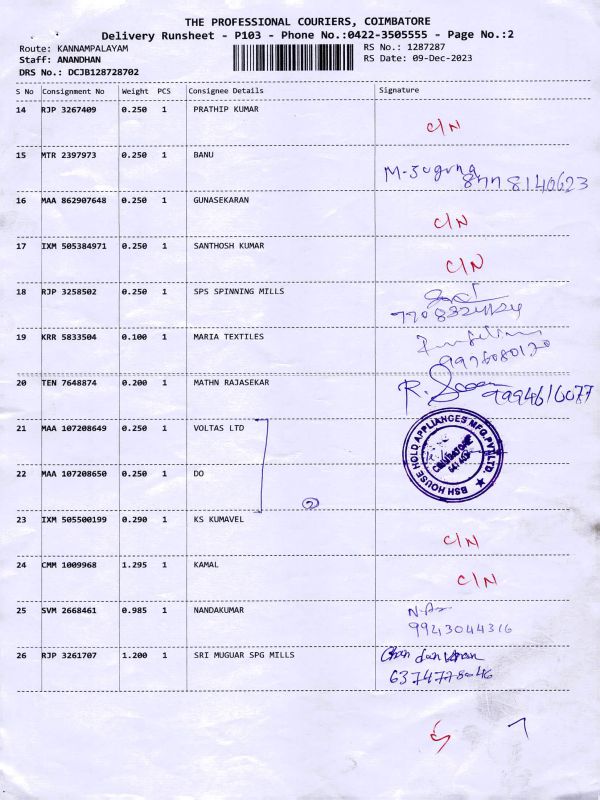 THE PROFESSIONAL COURIERS, COIMBATORE
Delivery Runsheet - P103 - Phone No.:0422-3505555 - Page No.:2
Route: KANNAMPALAYAM RS No.: 1287287
Staff: ANANDHAN RS Date: 09-Dec-2023
DRS No.: DCJB128728702
S No Consignment No Weight PCS Consignee Details Signature
14 RJP 3267409 0.250 1 PRATHIP KUMAR C/N
15 MTR 2397973 0.250 1 BANU M-Suguna
8140623
16 MAA 862907648 0.250 1 GUNASEKARAN C/N
17 IXM 505384971 0.250 1 SANTHOSH KUMAR C/N
18 RJP 3258502 0.250 1 SPS SPINNING MILLS
19 KRR 5833504 0.100 1 MARIA TEXTILES
20 TEN 7648874 0.200 1 MATHN RAJASEKAR R. 9994616077
21 MAA 107208649 0.250 1 VOLTAS LTD
BSH HOUSE HOLD APPLIANCES MFG.PVT.LTD.
COIMBATORE
22 MAA 107208650 0.250 1 DO
2
23 IXM 505500199 0.290 1 KS KUMAVEL C/N
24 CMM 1009968 1.295 1 KAMAL C/N
25 SVM 2668461 0.985 1 NANDAKUMAR
9943044316
26 RJP 3261707 1.200 1 SRI MUGUAR SPG MILLS
6374778046
5 7